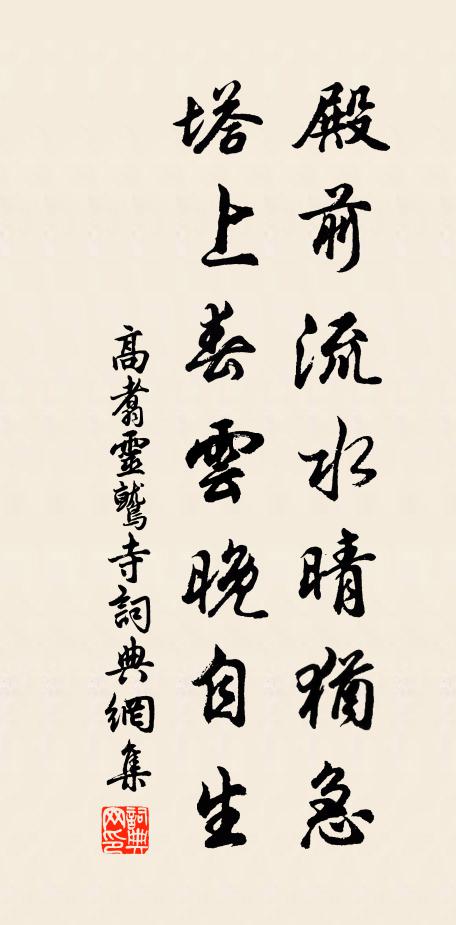 殿前流水晴猶急
塔上春雲晚自生
高翥靈鷲寺詞典網集
詞典網印